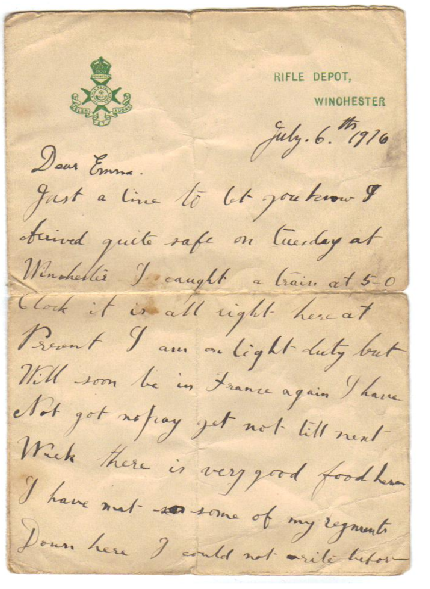 RIFLE DEPOT,
WINCHESTER
July. 6.th 1916
Dear Emma.
Just a line to let you know I
arived quite safe on tuesday at
Winchester I caught a train at 5-0
Clock it is all right here at
Present I am on light duty but
Will soon be in France again I have
Not got no pay yet not till next
Week there is very good food here
I have met some of my regments
Down here I could not write befor